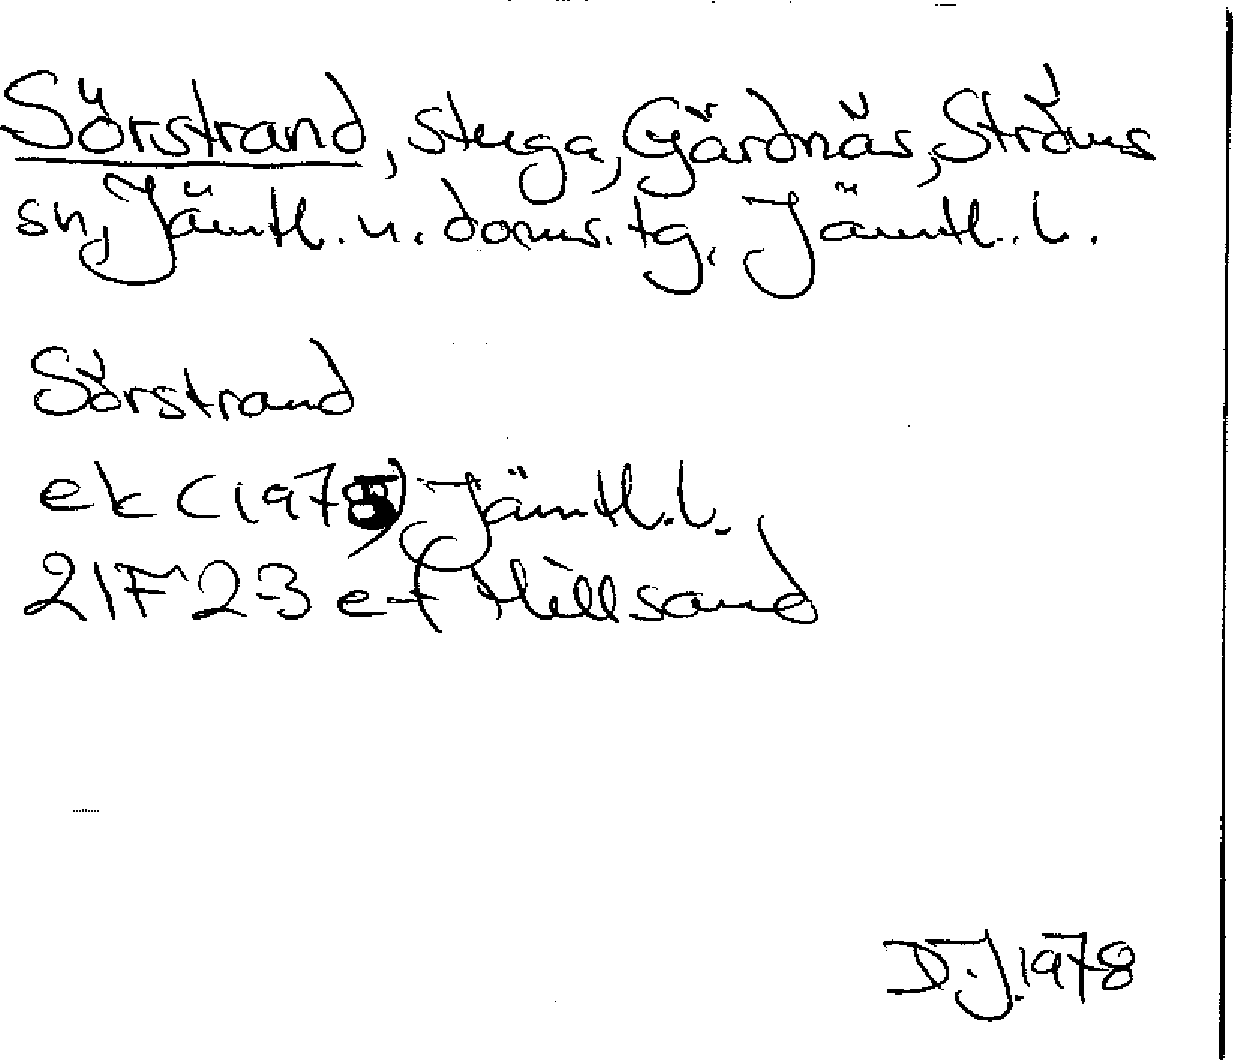 Sörstrand, stuga, Gärdnäs, Ströms
sn, Jämtl. n. doms. tg, Jämtl. l.
Sörstrand
ek (1975) Jämtl. l.
21F 2-3 e-f Hillsand
D.J. 1978